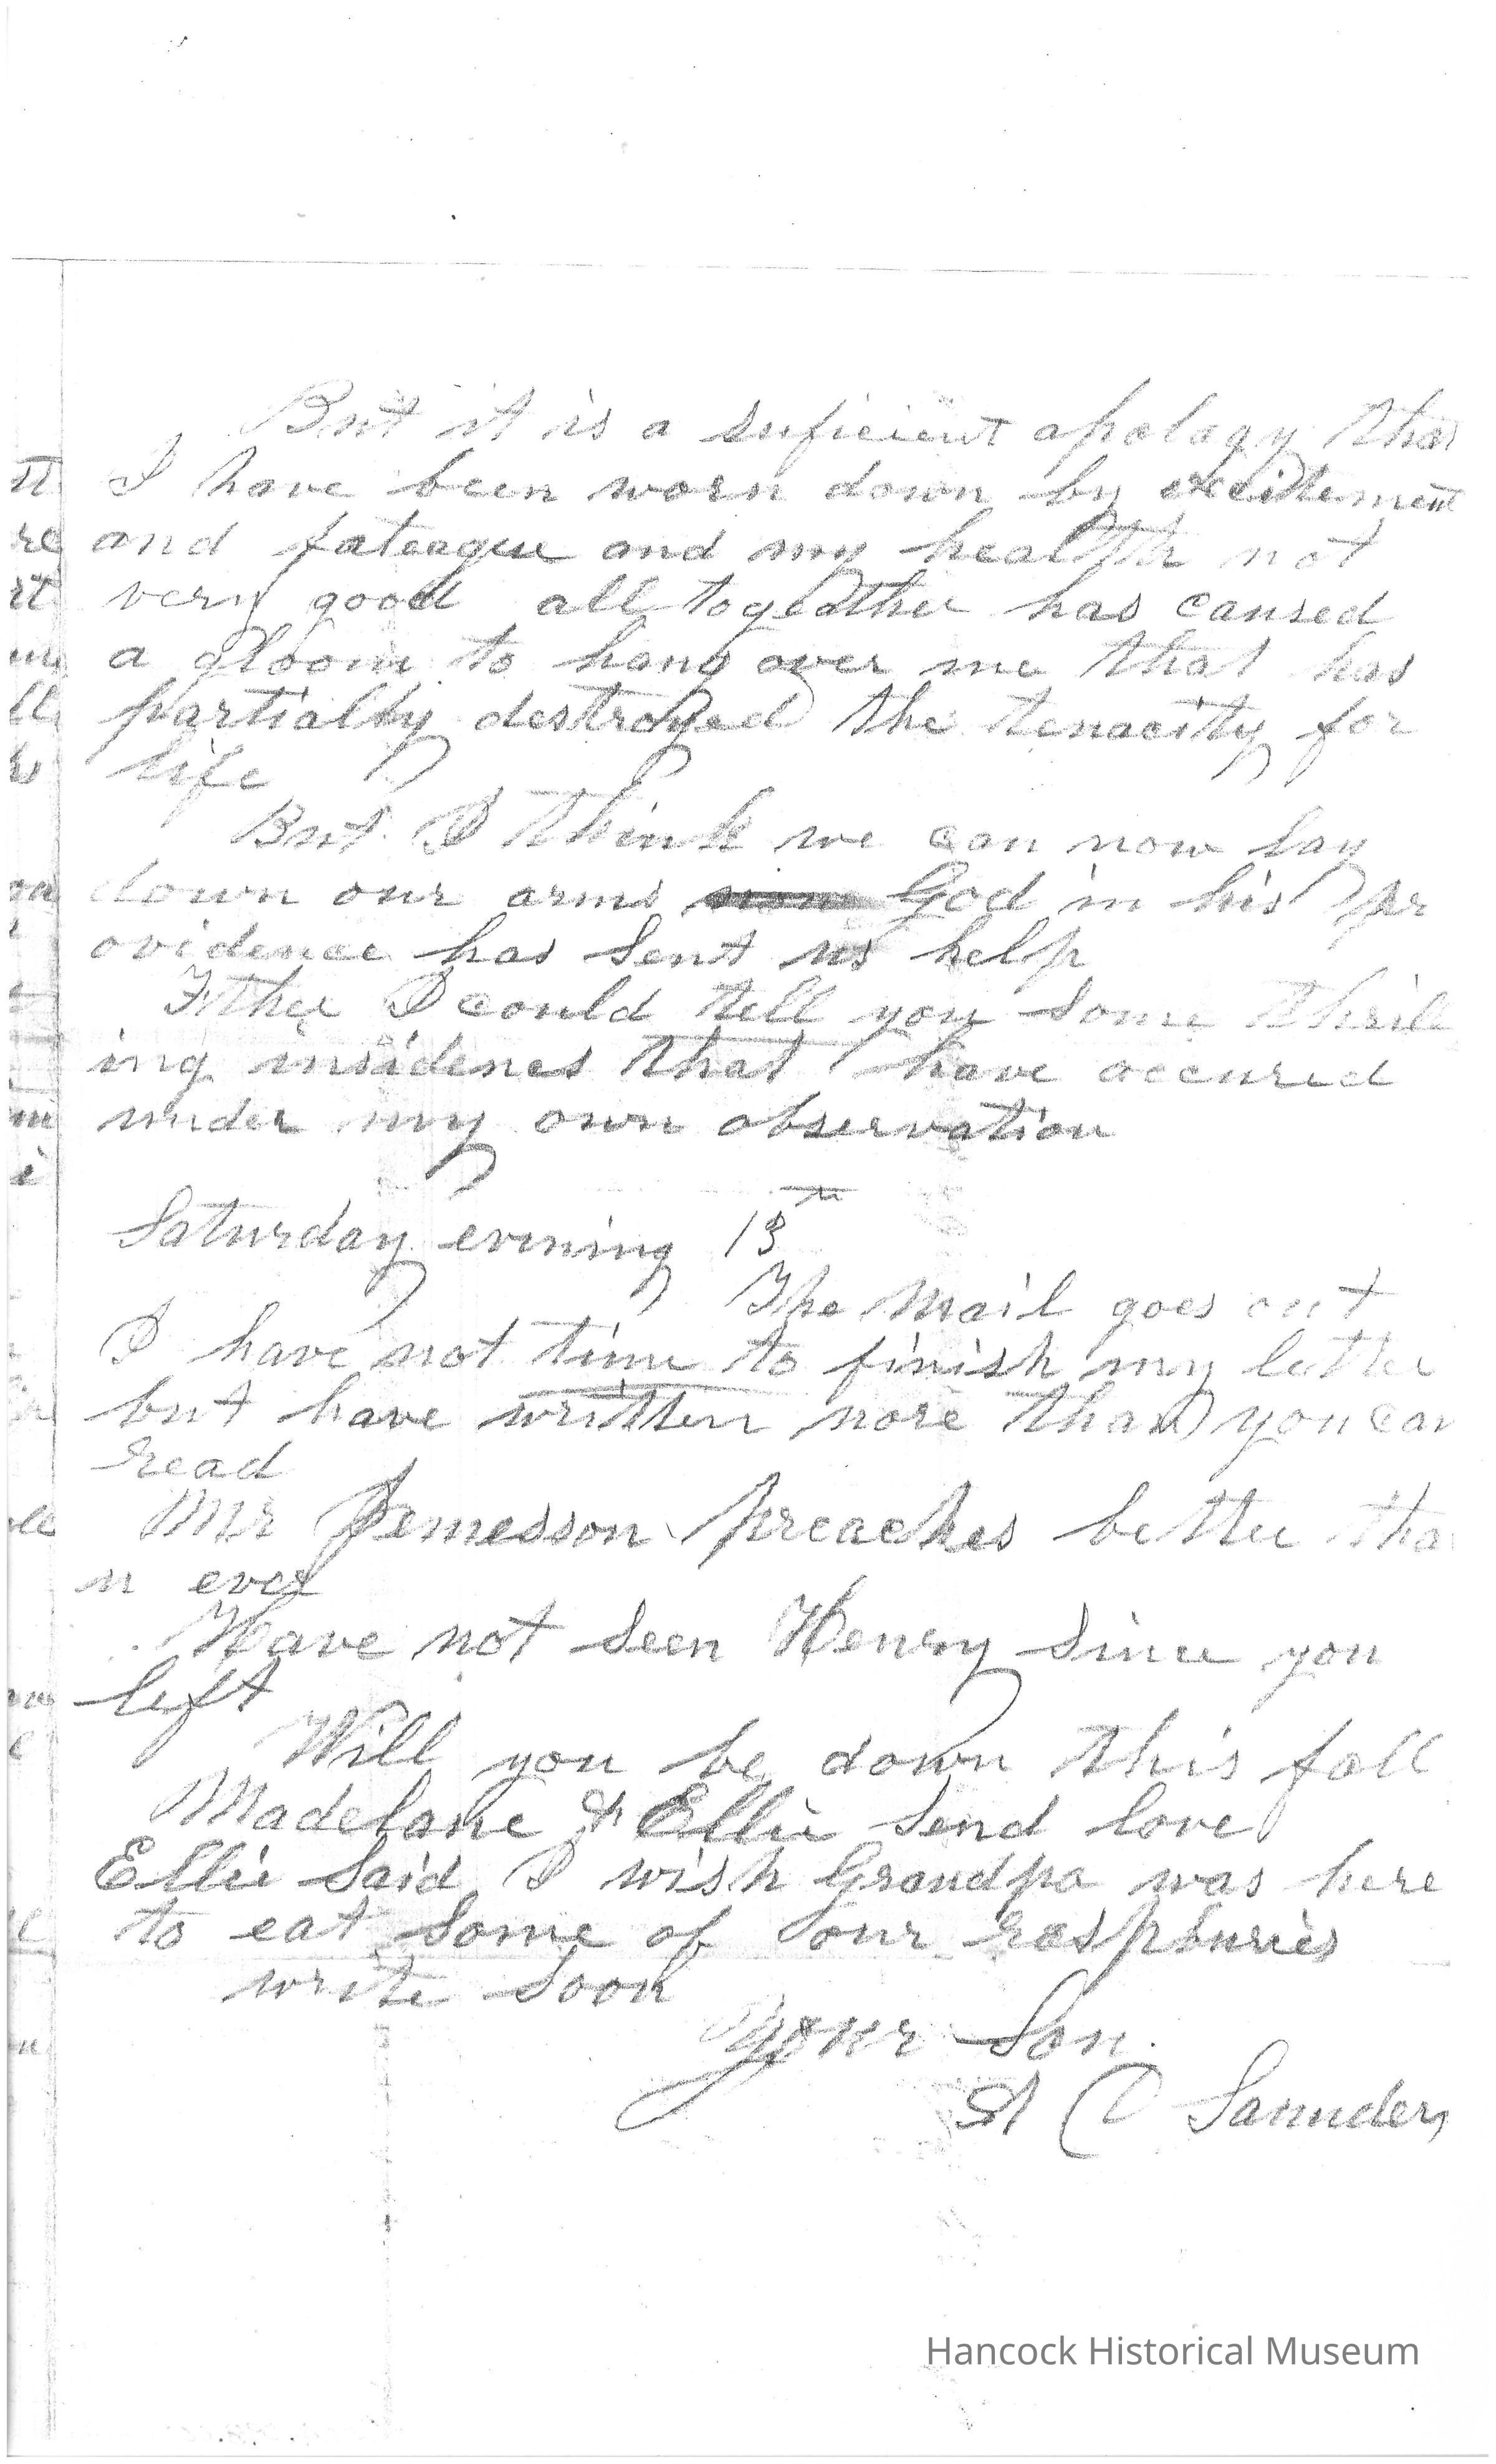 But it is a suficient apology tha
I have been worn down by excitement
and fateague and my health not
very good all togeather has caused
a gloom to hang over me that has
partially destroyed the tenacity for
life
But I think we can now lay
down our arms God in his pr
ovidence has sent us help
Father I could tell you some thrill
ing insidenes that have accured
under my own observation
Saturday evening 13th
The Mail goes out
I have not time to finish my letter
but have written more than you can
read
Mr Jemesson preaches better tha
n ever
Have not seen Henry since you
left
Will you be down this fall
Madelane & Ellie send love
Ellie said I wish Grandpa was here
to eat some of our raspburies
write soon
Your Son.
A C Saunders
Hancock Historical Museum